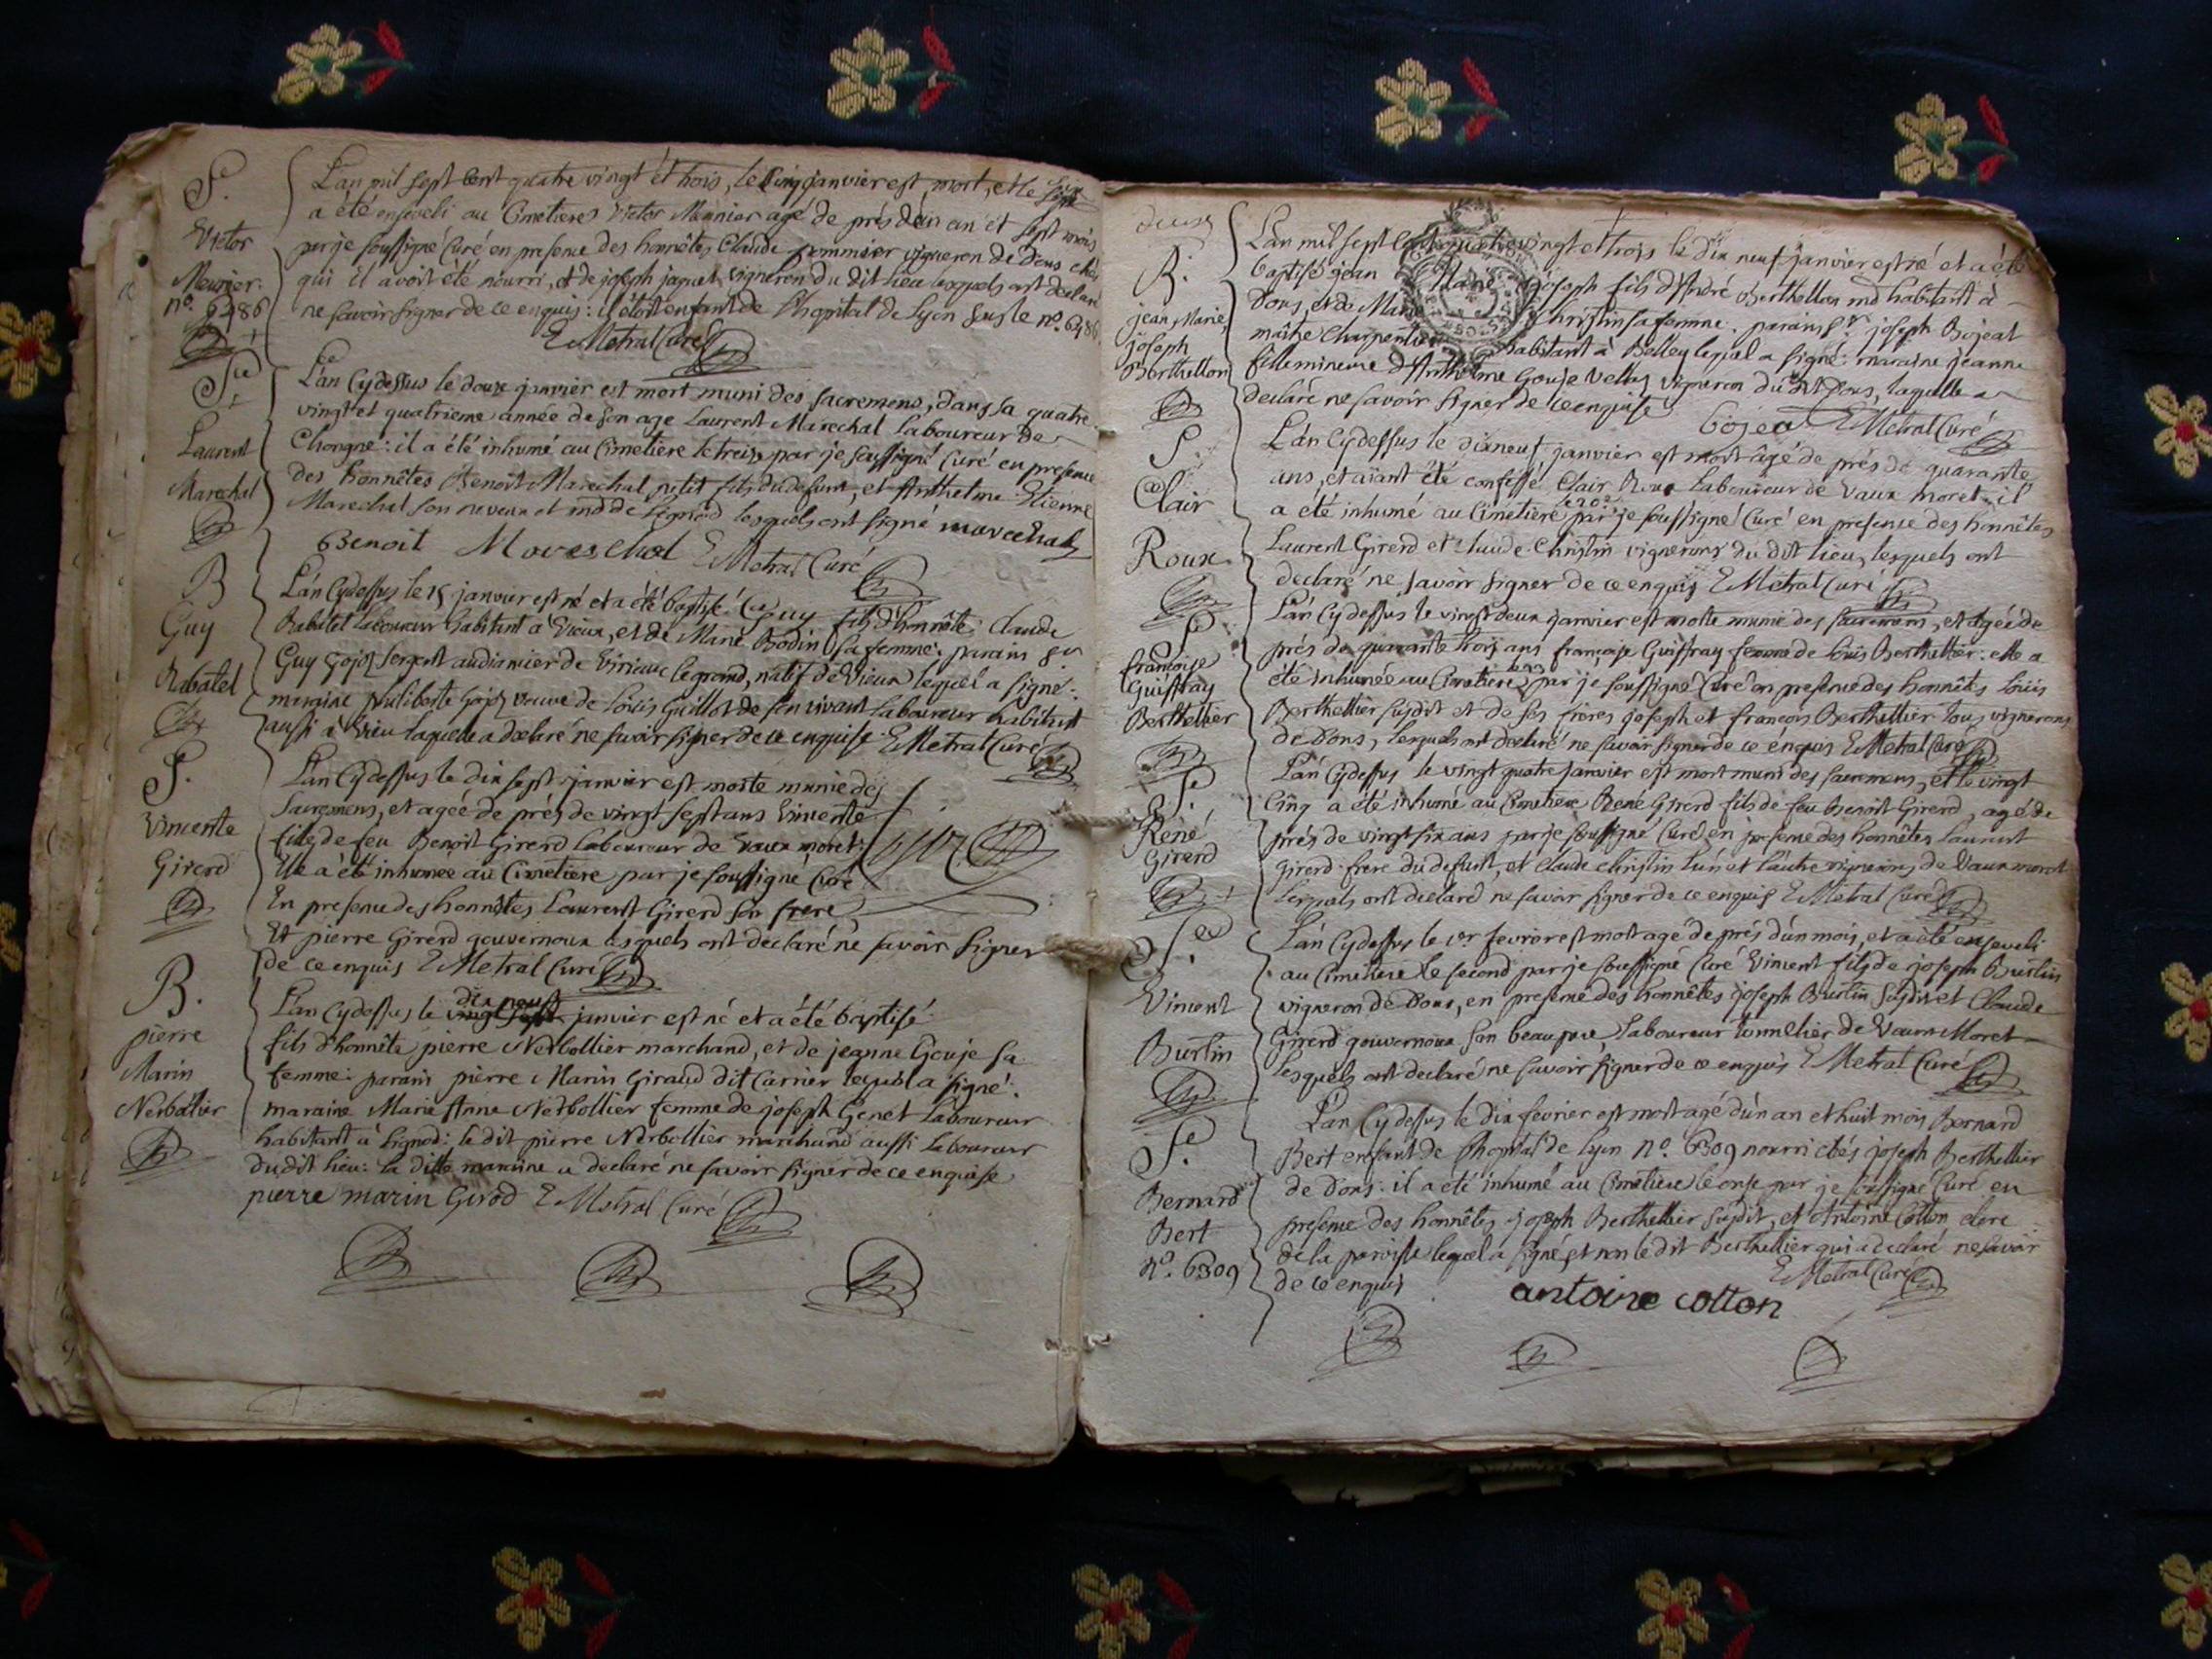 S.
Victor
Meunier.
n°. 6486
L'an mil sept cent quatre vingt et trois, le cinq janvier est mort, et le six
a été enseveli au Cimetiere Victor Meunier agé de prés d'un an et sept mois
par je soussigné Curé en presence des honnêtes Claude pommier vigneron de Dons chés
qui il avoit été nourri, et de joseph jaquet vigneron du dit lieu lesquels ont declaré
ne savoir signer de ce enquis: il étoit enfant de l'hopital de Lyon sus le n°. 6486
E Metral Curé
S.
Laurent
Marechal
L'an Cydessus le douze janvier est mort muni des sacremens, dans sa quatre
vingt et quatrieme année de son age Laurent Marechal laboureur de
Chongne: il a été inhumé au Cimetiere le treize par je soussigné Curé en presence
des honnêtes Benoit Marechal petit fils du defunt, et Anthelme Etienne
Marechal son neveux et md de lignod lesquels ont signé marechal
Benoit Mareschal E Metral Curé
B
Guy
Rabatel
L'an Cydessus le 15 janvier est né et a été baptisé Guy fils d'honnête Claude
Rabatel laboureur habitant à Vieux, et de Marie Bodin sa femme: parain sr.
Guy Gojoz sergent audiancier de Virieux le grand, natif de Vieux lequel a signé:
maraine philiberte Gojoz veuve de Loüis Guillot de son vivant laboureur habitant
aussi à Vieu laquelle a declaré ne savoir signer de ce enquise E Metral Curé
S.
Vincente
Girerd
L'an Cydessus le dix sept janvier est morte munie des
sacremens, et agée de prés de vingt sept ans Vincente
fille de feu Benoit Girerd laboureur de Vaux moret:
Elle a été inhumée au Cimetiere par je soussigné Curé
En presence des honnêtes Laurent Girerd son frere
Et pierre Girerd gouvernoux lesquels ont declaré ne savoir signer
de ce enquis E Metral Curé
B.
pierre
Marin
Nerbollier
dix neuf
L'an Cydessus le vingt sept janvier est né et a été baptisé
fils d'honnête pierre Nerbollier marchand, et de jeanne Gouje sa
femme: parain pierre Marin Giraud dit Carrier lequel a signé:
maraine Marie Anne Nerbollier femme de joseph Genet laboureur
habitant à lignod: le dit pierre Nerbollier marchand aussi laboureur
du dit lieu: la ditte maraine a declaré ne savoir signer de ce enquise
pierre marin Girod E Metral Curé
B.
jean Marie
joseph
Berthellon
L'an mil sept cent quatre vingt et trois le dix neuf janvier est né et a été
baptisé jean Marie joseph fils d'André Berthellon md habitant à
Dons, et de Marie Christin sa femme: parain sr. joseph Bojeat
maître Charpentier habitant à Belley lequel a signé: maraine jeanne
fille mineure d'Anthelme Gouje Vellas vigneron du dit Dons, laquelle a
declaré ne savoir signer de ce enquise bojeat E Metral Curé
S.
Clair
Roux
L'an Cydessus le dixneuf janvier est mort agé de prés de quarante
ans, et aiant été confessé Clair Roux laboureur de Vaux moret: il
le 20.
a été inhumé au Cimetiere par je soussigné Curé en presence des honnêtes
Laurent Girerd et Claude Christin vignerons du dit lieu, lesquels ont
declaré ne savoir signer de ce enquis E Metral Curé
S.
françoise
Guiffray
Berthellier
L'an Cydessus le vingt deux janvier est morte munie des sacremens, et agée de
prés de quarante trois ans françoise Guiffray femme de Loüis Berthellier: elle a
le 23
été inhumée au Cimetiere par je soussigné Curé en presence des honnêtes Loüis
Berthellier susdit et de ses freres joseph et françois Berthellier tous vignerons
de Dons, lesquels ont declaré ne savoir signer de ce enquis E Metral Curé
S.
René
Girerd
L'an Cydessus le vingt quatre janvier est mort muni des sacremens, et le vingt
cinq a été inhumé au Cimetiere René Girerd fils de feu Benoit Girerd, agé de
prés de vingt six ans par je soussigné Curé en presence des honnêtes Laurent
Girerd frere du defunt, et Claude Christin l'un et l'autre vignerons de Vaux moret
lesquels ont declaré ne savoir signer de ce enquis E Metral Curé
S.
Vincent
Burlin
L'an Cydessus le 1er. fevrier est mort agé de prés d'un mois, et a été enseveli
au Cimetiere le second par je soussigné Curé Vincent fils de joseph Burlin
vigneron de Dons, en presence des honnêtes joseph Burlin susdit et Claude
Girerd gouvernoux son beaupere, laboureur tonnelier de Vaux Moret
lesquels ont declaré ne savoir signer de ce enquis E Metral Curé
S.
Bernard
Bert
N°. 6309
L'an Cydessus le dix fevrier est mort agé d'un an et huit mois Bernard
Bert enfant de l'hopital de Lyon N°. 6309 nourri chés joseph Berthellier
de Dons: il a été inhumé au Cimetiere le onze par je soussigné Curé en
presence des honnêtes joseph Berthellier susdit, et Antoine Cotton clerc
de la paroisse lequel a signé et non le dit Berthellier qui a declaré ne savoir
de ce enquis E Metral Curé
antoine cotton